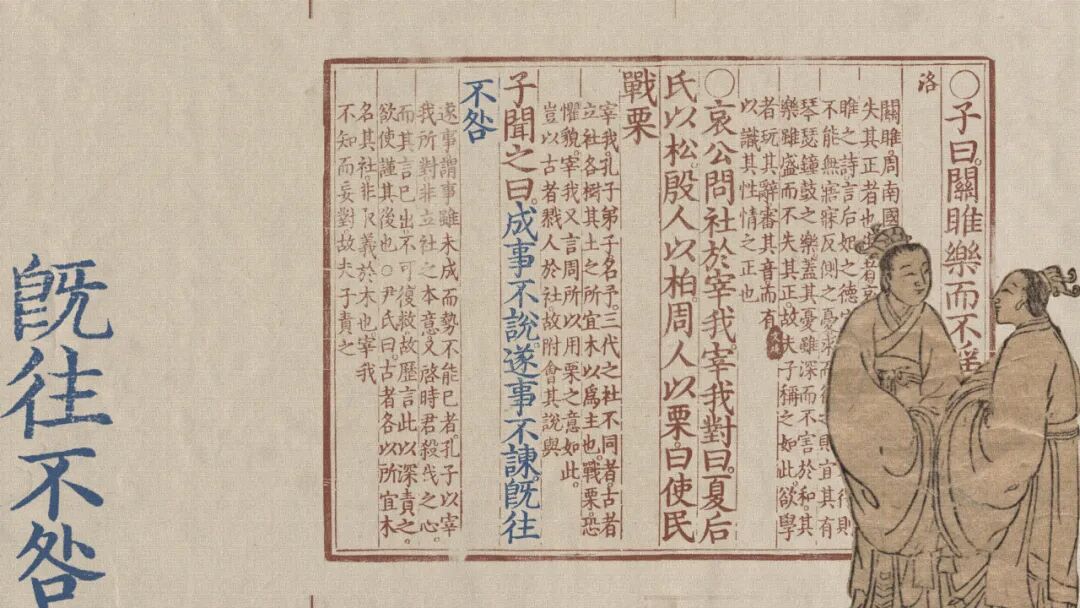 〇子曰。關雎樂而不
洛
關雎。周南國
失其正者也
雎之詩言后妃之德
不能無寤寐反側之憂求而得之則宜其有
琴瑟鐘鼓之樂。蓋其憂雖深而不害於和。其
樂雖盛而不失其正。故夫子稱之如此。欲學
者玩其辭審其音。而有
以識其性情之正也
〇哀公問社於宰我宰我對曰。夏后
氏以松。殷人以柏。周人以栗。曰使民
戰栗
宰我。孔子弟子。名予。三代之社不同者。古者
立社。各樹其土之所宜木以爲主也。戰栗。恐
懼貌。宰我又言周所以用栗之意如此。
豈以古者戮人於社。故附會其說與
子聞之曰。成事不說。遂事不諫。旣往
不咎
遂事謂事雖未成而勢不能已者。孔子以宰
我所對非立社之本意。又啓時君殺伐之心。
而其言已出不可復救。故歷言此以深責之。
欲使謹其後也。〇尹氏曰。古者各以所宜木
名其社。非取義於木也。宰我
不知而妄對故夫子責之
旣往不咎